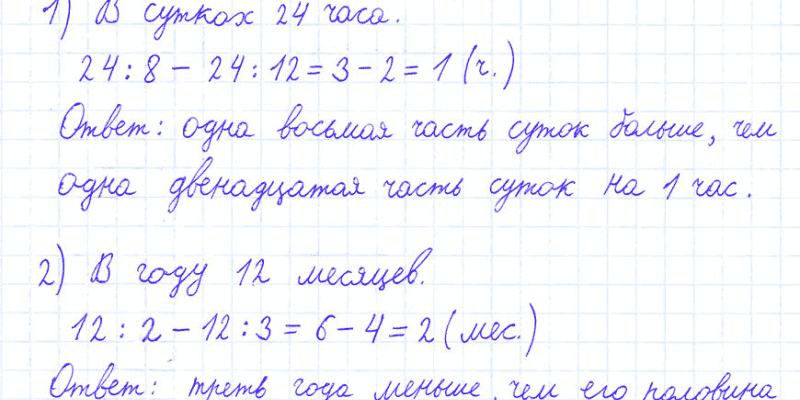 1) В сутках 24 часа.
24 : 8 – 24 : 12 = 3 – 2 = 1 (ч.)
Ответ: одна восьмая часть суток больше, чем
одна двенадцатая часть суток на 1 час.
2) В году 12 месяцев.
12 : 2 – 12 : 3 = 6 – 4 = 2 (мес.)
Ответ: треть года меньше, чем его половина